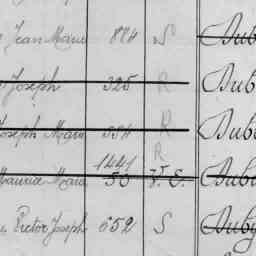 Jean Marie 884 S Dub
Joseph 325 R Dub
Joseph Marie 554 R Dub
1441 R
Maurice Marie 50 V.E. Dub
Victor Joseph 652 S Duby